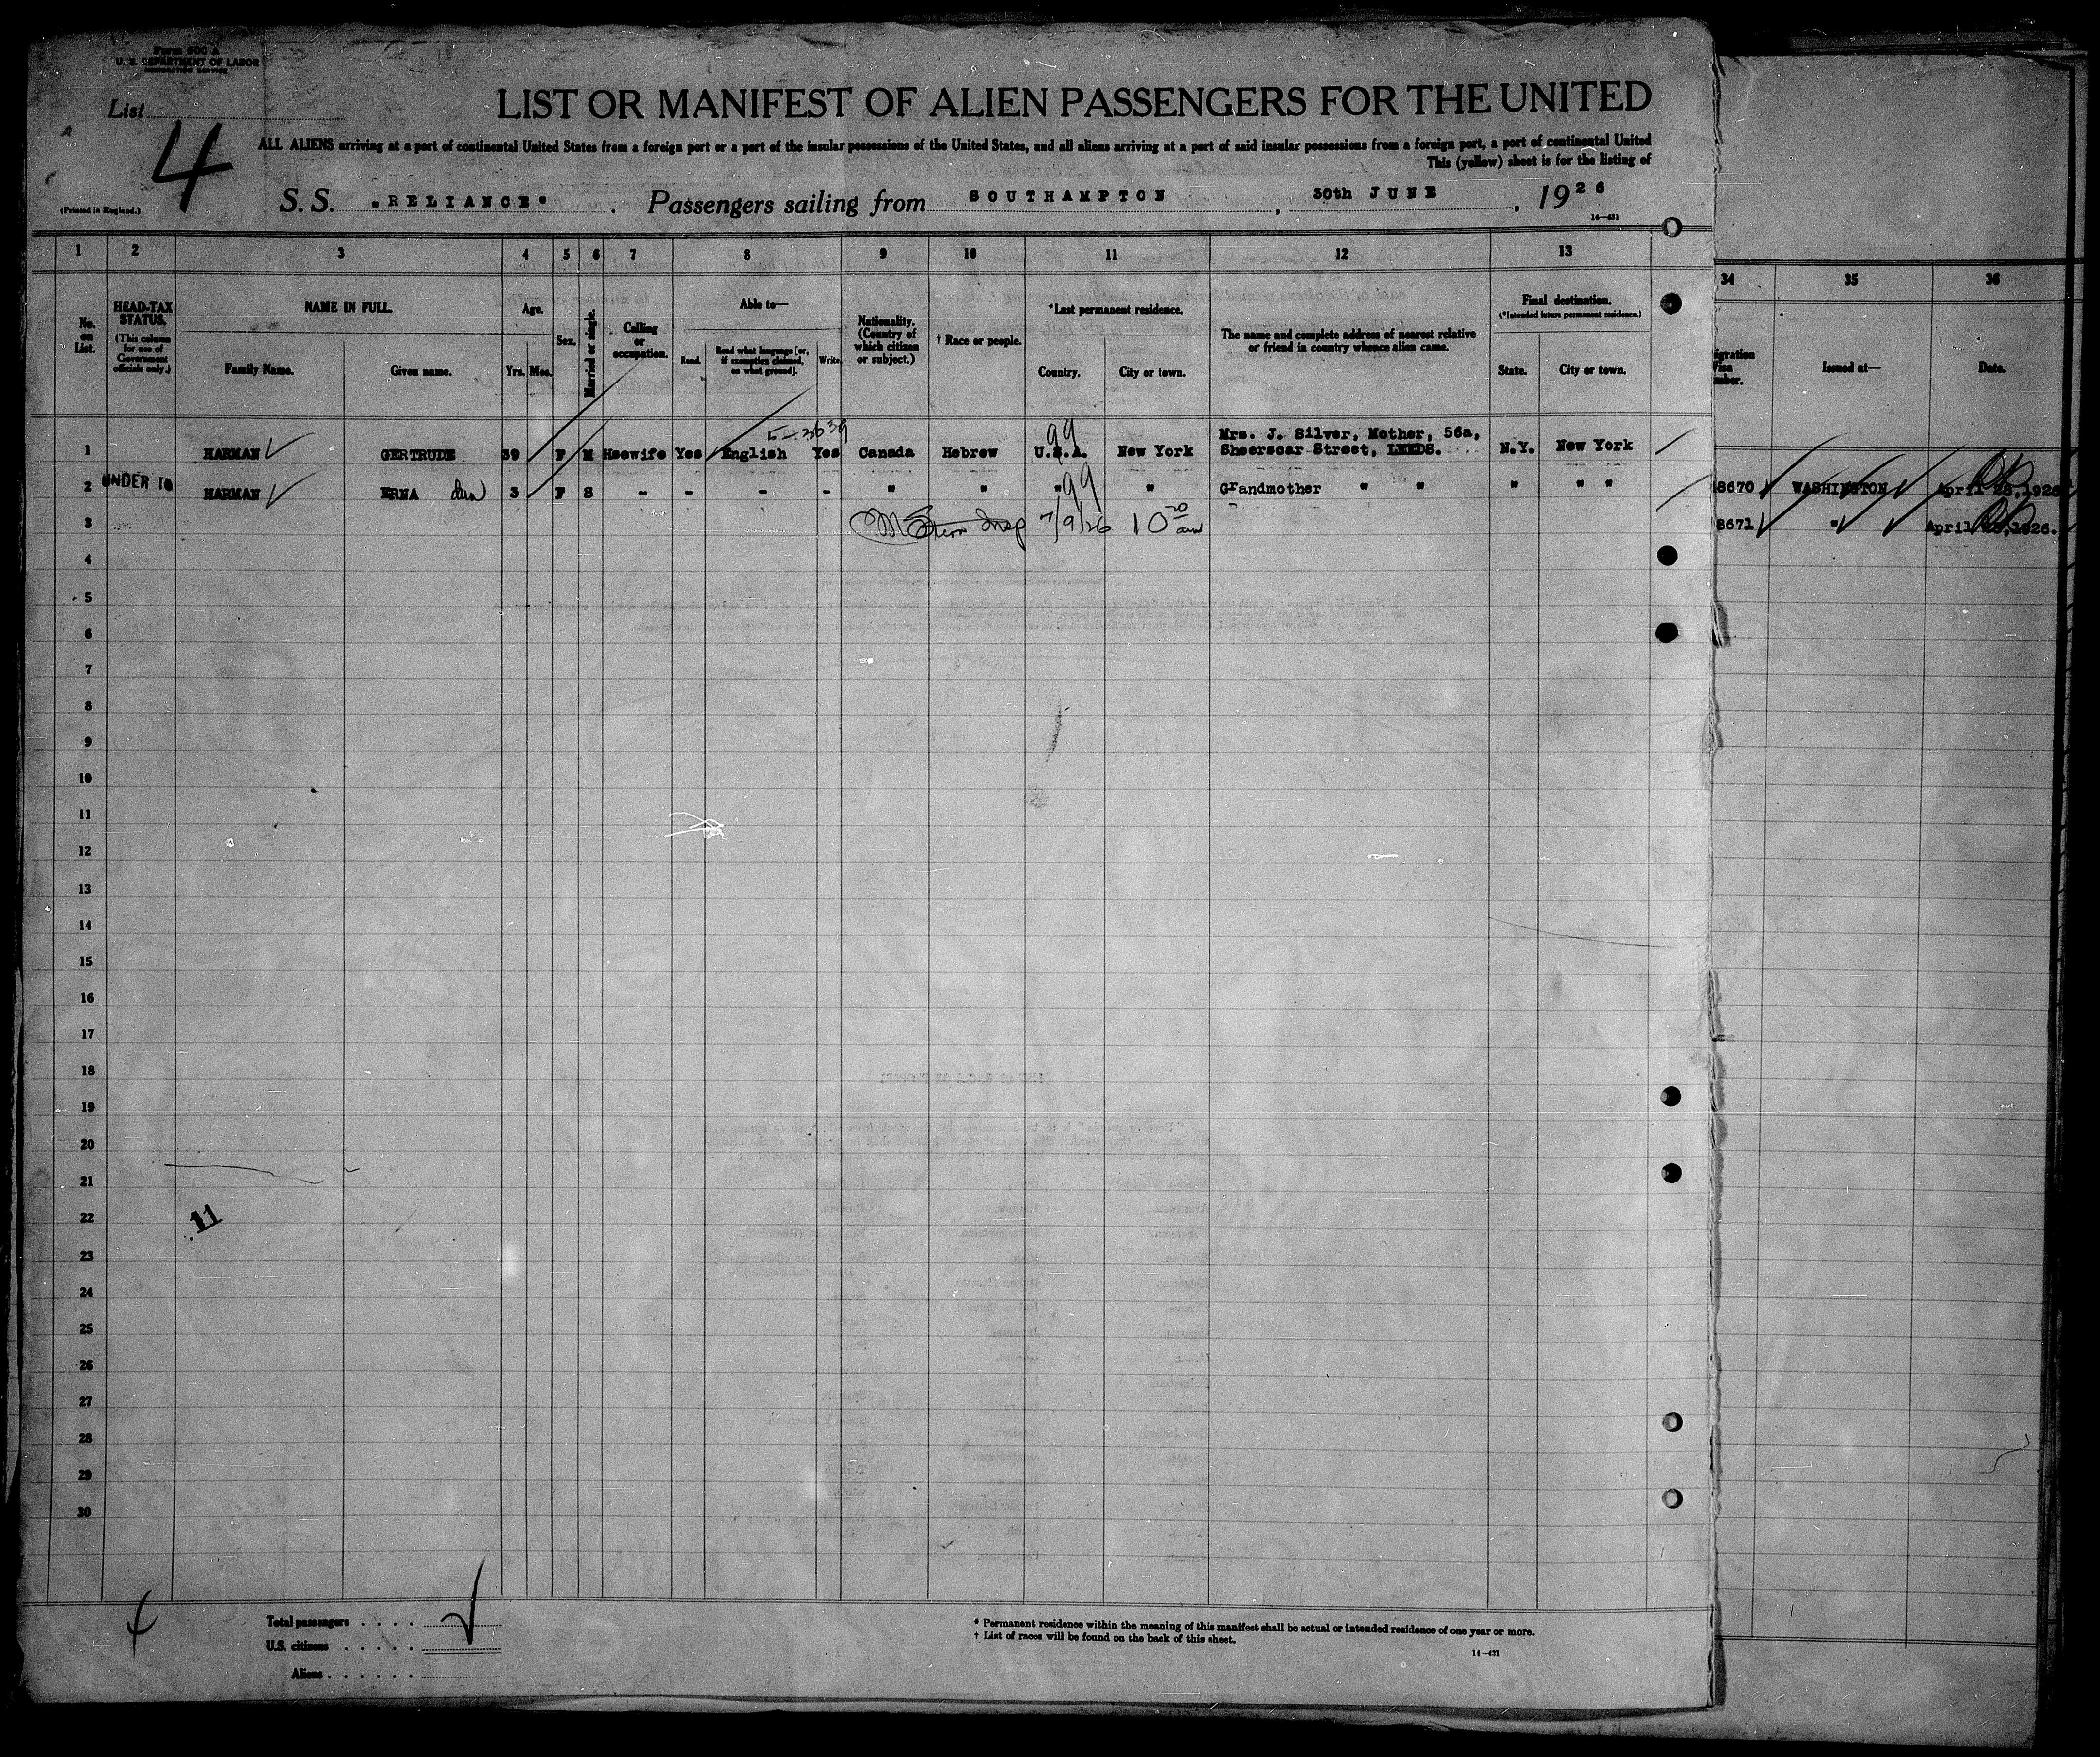 Form 500 A
U. S. DEPARTMENT OF LABOR
IMMIGRATION SERVICE
List
4
(Printed in England.)
LIST OR MANIFEST OF ALIEN PASSENGERS FOR THE UNITED
ALL ALIENS arriving at a port of continental United States from a foreign port or a port of the insular possessions of the United States, and all aliens arriving at a port of said insular possessions from a foreign port, a port of continental United
This (yellow) sheet is for the listing of
S. S. "RELIANCE" . Passengers sailing from SOUTHAMPTON , 30th JUNE , 1926
14—431
1 2 3 4 5 6 7 8 9 10 11 12 13 34 35 36
No. on List.
HEAD-TAX STATUS. (This column for use of Government officials only.)
NAME IN FULL.
Family Name. Given name.
Age.
Yrs. Mos.
Sex.
Married or single.
Calling or occupation.
Able to—
Read. Read what language [or, if exemption claimed, on what ground]. Write.
Nationality. (Country of which citizen or subject.)
† Race or people.
*Last permanent residence.
Country. City or town.
The name and complete address of nearest relative or friend in country whence alien came.
Final destination.
(*Intended future permanent residence.)
State. City or town.
Issued at—
Date.
99
Mrs. J. Silver, Mother, 56a,
1 HARMAN GERTRUDE 39 F M Hsewife Yes English Yes Canada Hebrew U.S.A. New York Sheerscar Street, LEEDS. N.Y. New York
2 UNDER 16 HARMAN ERNA 3 F S - - - - " " " 99 " Grandmother " " " " "
8670 WASHINGTON April 28, 1926
3 7/9/26 10 20 am
8671 " April 28, 1926.
4
5
6
7
8
9
10
11
12
13
14
15
16
17
18
19
20
21
22
11
23
24
25
26
27
28
29
30
Total passengers . . . .
U.S. citizens . . . . .
Aliens . . . . . .
* Permanent residence within the meaning of this manifest shall be actual or intended residence of one year or more.
† List of races will be found on the back of this sheet.
14—431